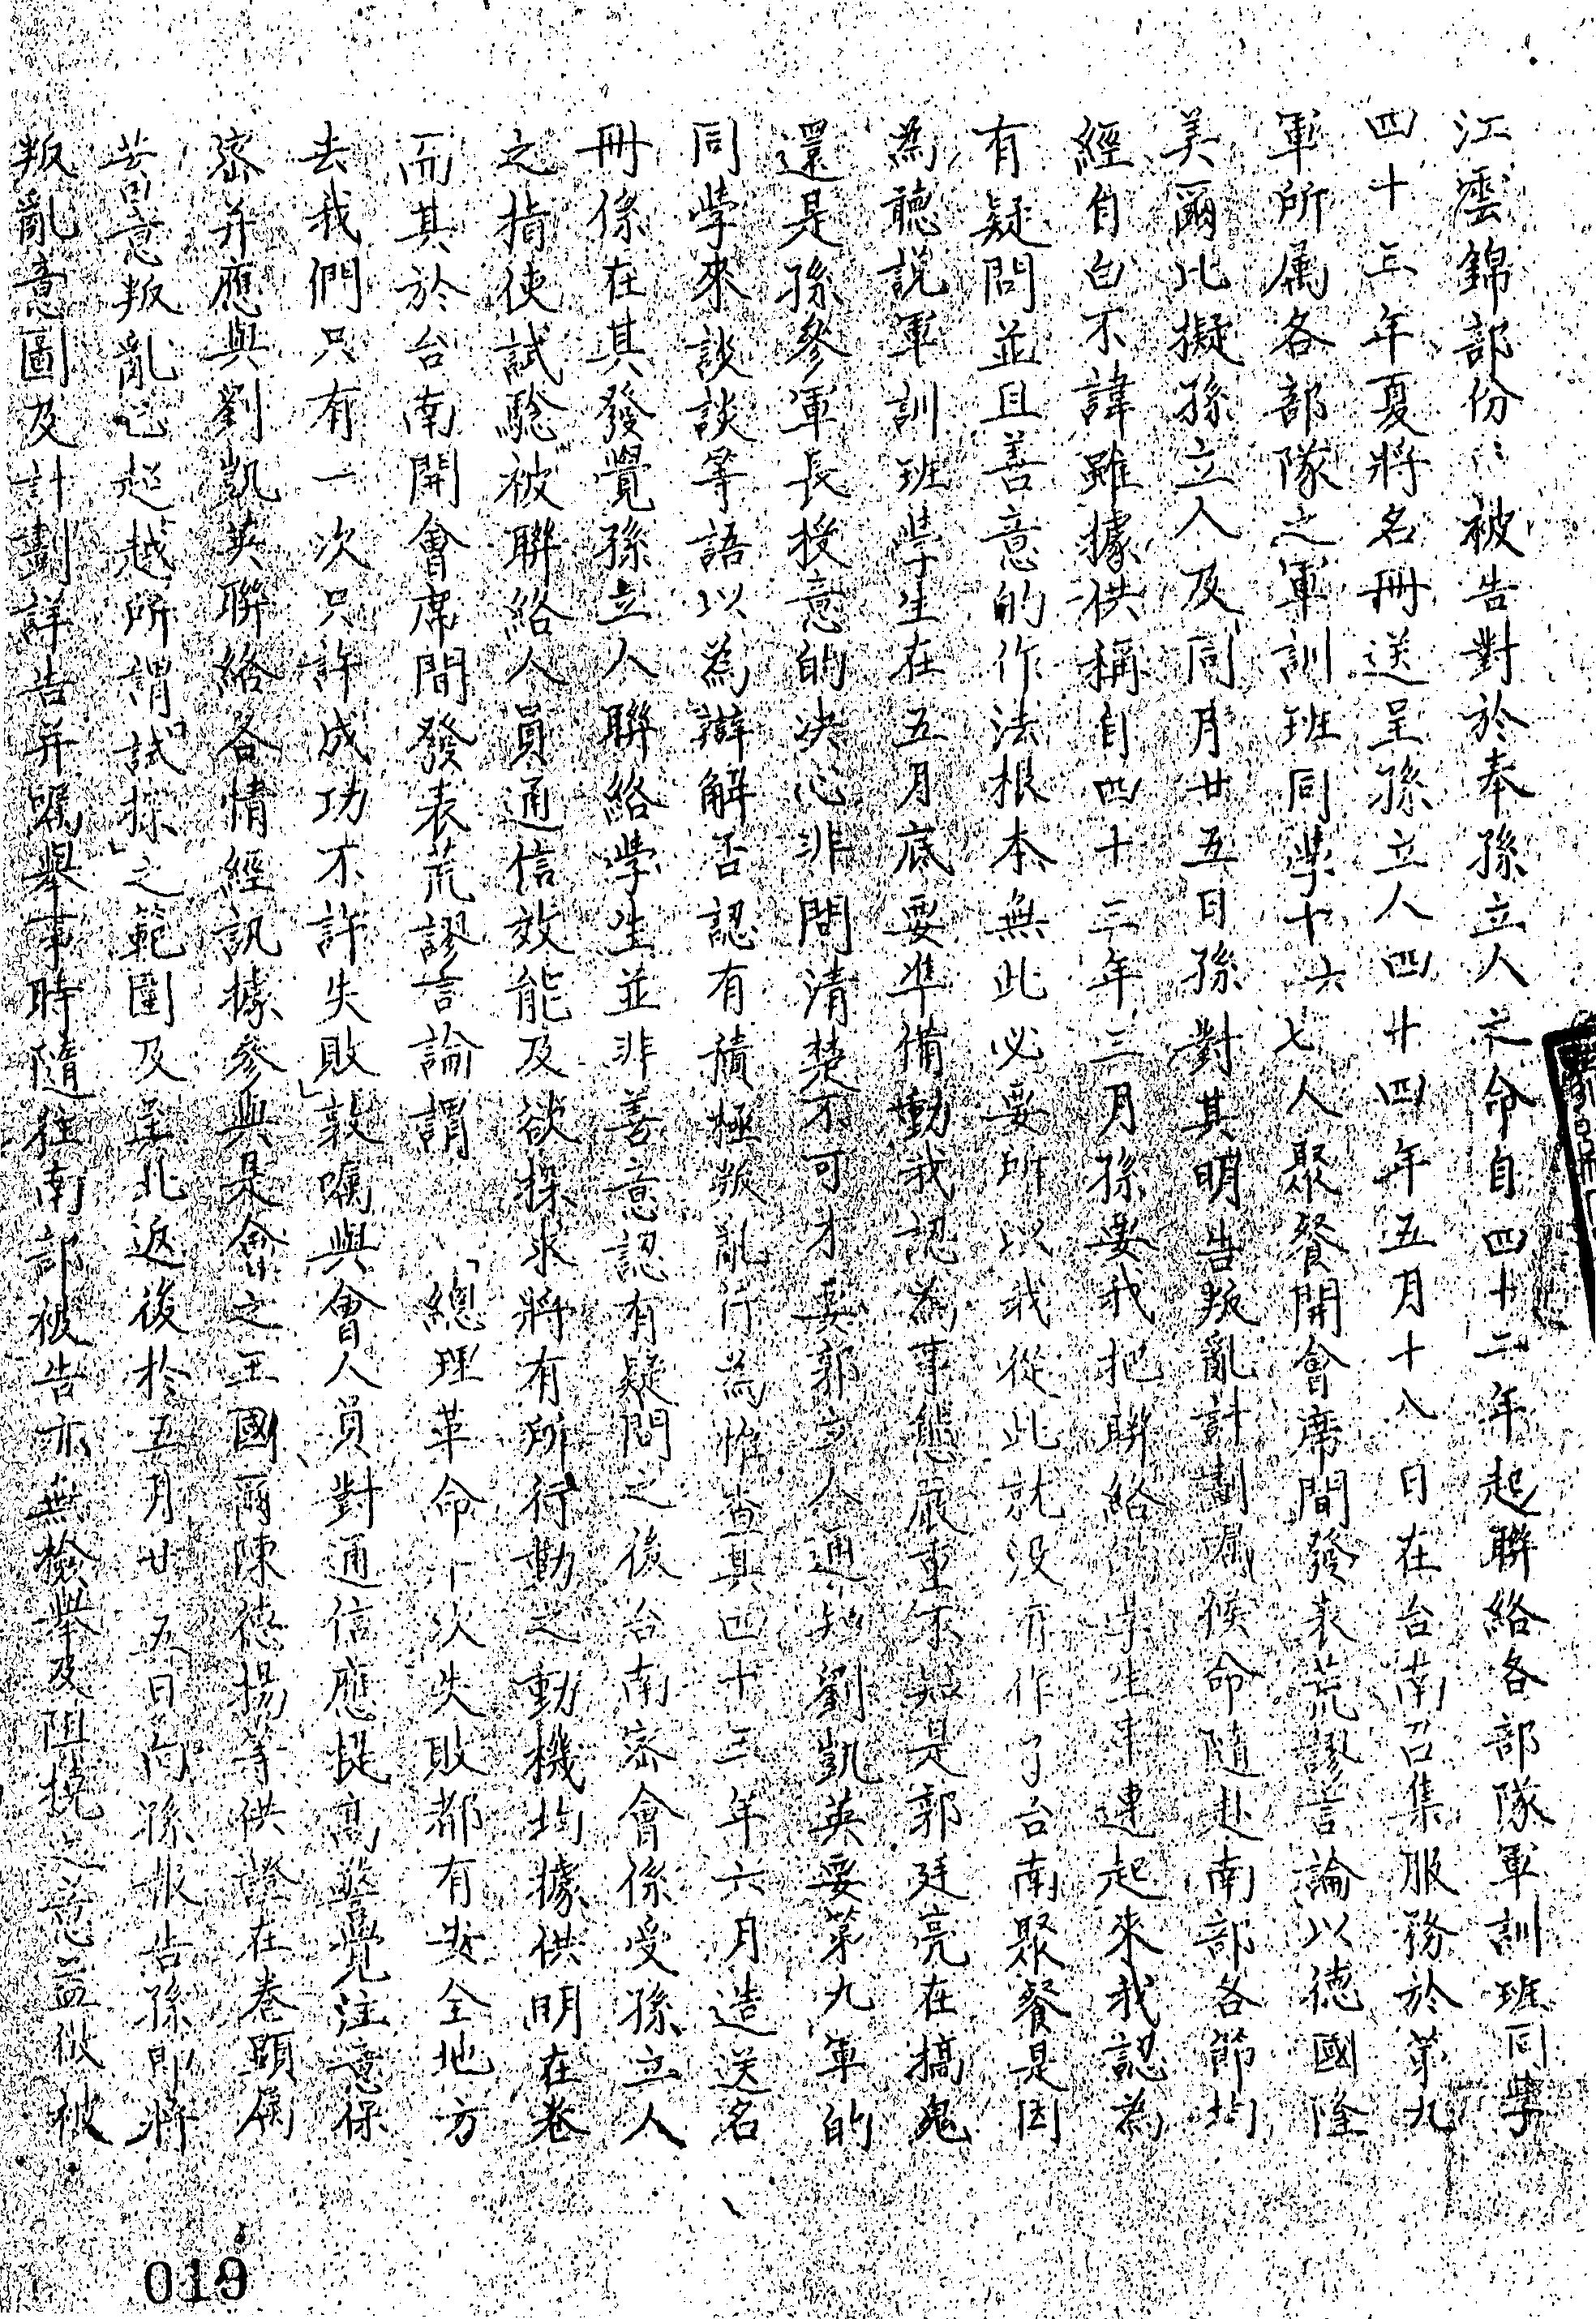 江雲錦部份：被告對於奉孫立人之命自四十二年起聯絡各部隊軍訓班同學
四十三年夏將名冊送呈孫立人四十四年五月十八日在台南召集服務於第九
軍所属各部隊之軍訓班同學十六七人聚餐開會席間發表荒謬言論以德國隆
美爾比擬孫立人及同月廿五日孫對其明告叛亂計劃囑候命隨赴南部各節均
經自白不諱雖據供稱自四十三年三月孫要我把聯絡學生串連起來我認為
有疑問並且善意的作法根本無此必要所以我從此就没有作了台南聚餐是因
為聽説軍訓班學生在五月底要準備動我認為事態嚴重不知是郭廷亮在搞鬼
還是孫參軍長授意的決心非問清楚不可才要郭立人通知劉凱英要第九軍的
同學來談談等語以為辯解否認有積極叛亂行為惟查其四十三年六月造送名
冊係在其發覺孫立人聯絡學生並非善意認有疑問之後台南密會係受孫立人
之指使試驗被聯絡人員通信效能及欲探求將有所行動之動機均據供明在卷
而其於台南開會席間發表荒謬言論謂「總理革命十次失敗都有安全地方
去我們只有一次只許成功不許失敗」敦囑與會人員對通信應提高警覺注意保
密并應與劉凱英聯絡各情經訊據參與是會之王國爾陳德揚等供證在卷顯屬
蓄意叛亂已超越所謂「試探」之範圍及至北返後於五月廿五日向孫報告孫即將
叛亂意圖及計劃詳告并囑舉事時隨往南部被告亦無檢舉及阻撓之意益徵被
019